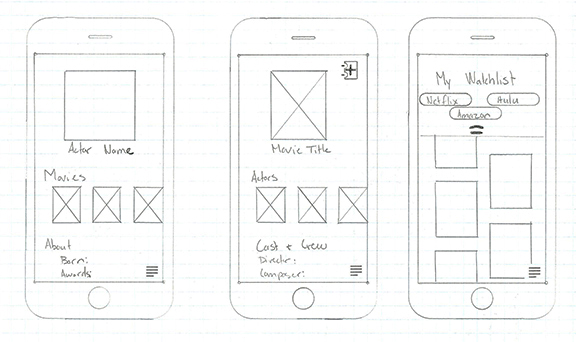 Actor Name
Movies
About
Born:
Awards:
Movie Title
Actors
Cast + Crew
Director:
Composer:
My Watchlist
Netflix
Hulu
Amazon